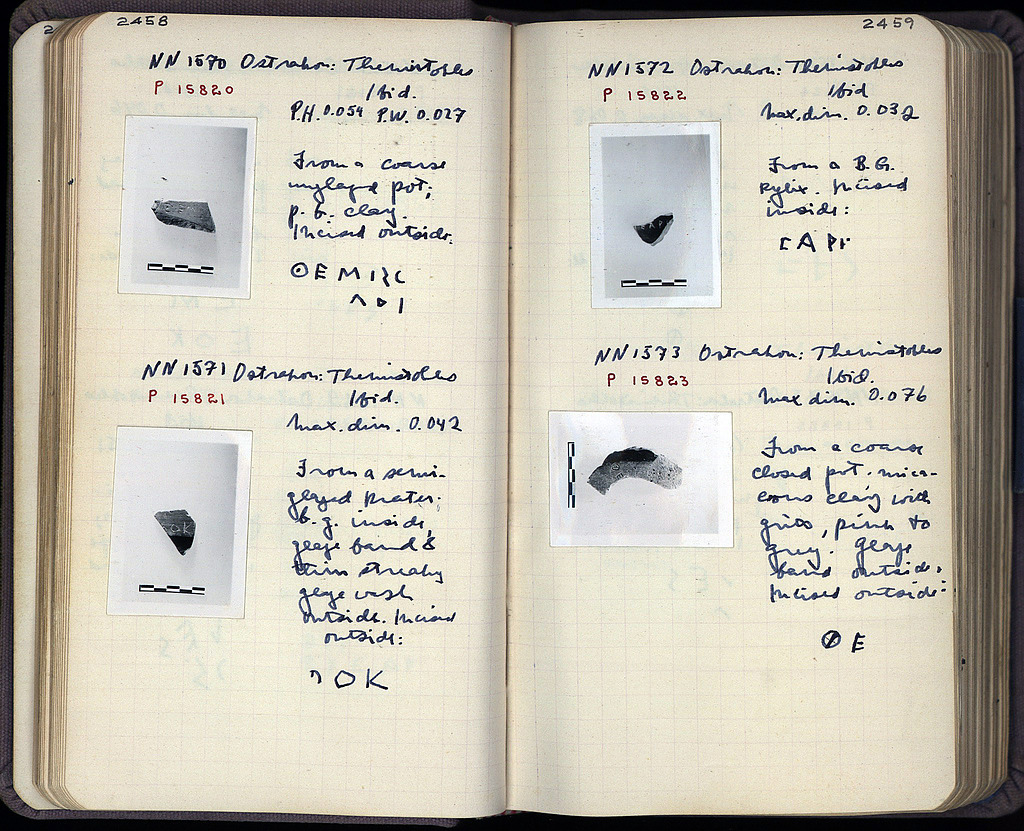 2458
NN 1570 Ostrakon: Themistokles
P 15820
Ibid.
P.H. 0.054 P.W. 0.027
From a coarse
unglazed pot;
p. b. clay.
Incised outside.
ΘEMIC
NN 1571 Ostrakon: Themistokles
P 15821
Ibid.
Max. dim. 0.042
From a semi-
glazed krater;
b. g. inside,
glaze band &
thin streaky
glaze wash
outside. Incised
outside:
OK
2459
NN 1572 Ostrakon: Themistokles
P 15822
Ibid
Max. dim. 0.032
From a B.G.
kylix. Incised
inside:
NN 1573 Ostrakon: Themistokles
P 15823
Ibid.
Max dim. 0.076
From a coarse
closed pot. mica-
ceous clay with
grits, pink to
grey. Glaze
band outside.
Incised outside:
⊗ E